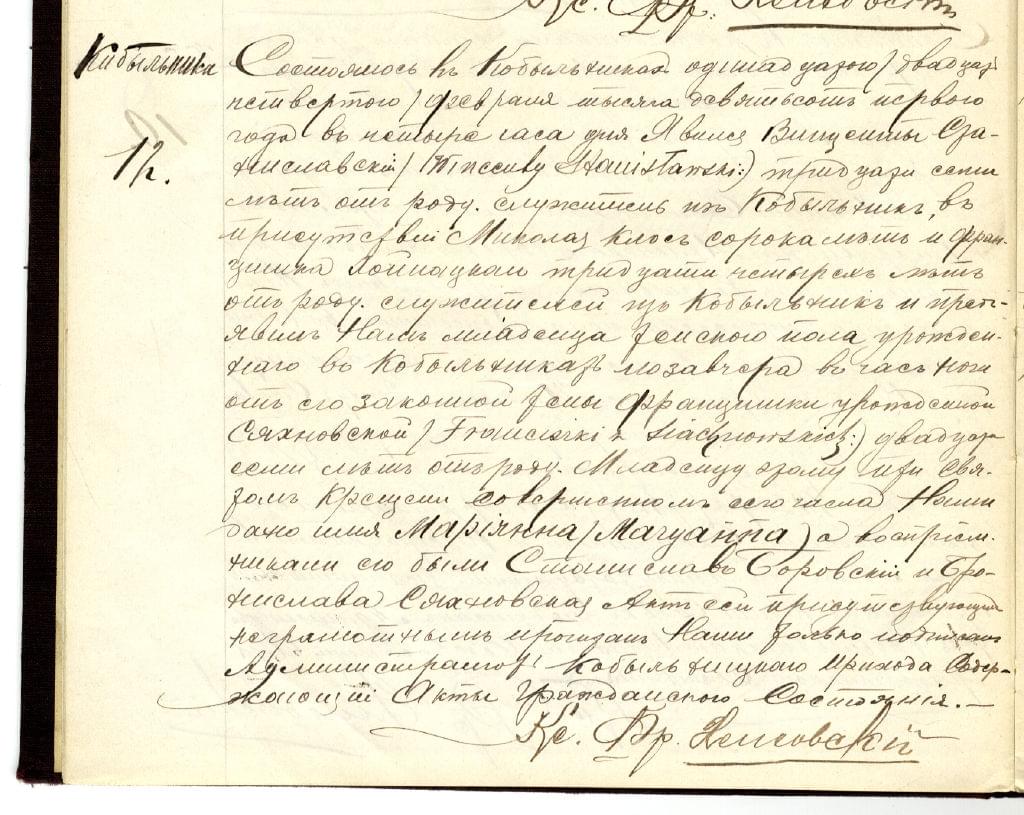 Кс. Фр.
Кобыльники
12.
Состоялось въ Кобыльникахъ одинадцатого / двадцать
четвертого / февраля тысяча девятьсотъ первого
года въ четыре часа дня Явился Винценты Ста-
ниславскій / Wincenty Stanisławski:) тридцати семи
лѣтъ отъ роду. служитель изъ Кобыльникъ, въ
присутствіи Миколая Клосъ сорока лѣтъ и Фран-
цишка тридцати четырехъ лѣтъ
отъ роду. служителей изъ Кобыльникъ и предъ-
явилъ Намъ младенца женского пола урожден-
наго въ Кобыльникахъ позавчера въ часъ ночи
отъ его законной жены Францишки урожденной
Сяхновской / Franciszki z Siachnowskich:) двадцати
семи лѣтъ отъ роду. Младенцу этому при Свя-
томъ Крещеніи совершенномъ сего числа Нами
дано имя Маріянна / Maryanna) а воспріем-
никами его были Станиславъ Боровскій и Бро-
нислава Сяхновская Актъ сей присутствующимъ
неграмотнымъ прочитанъ Нами только подписанъ
Администраторъ Кобыльницкаго Прихода Содер-
жающій Акты Гражданского Состоянія.—
Кс. Фр.